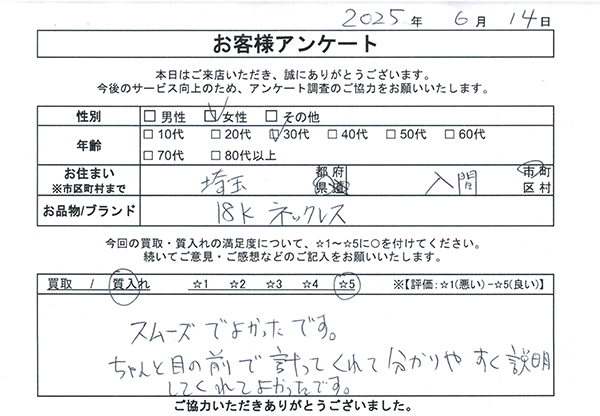 2025年 6月 14日
お客様アンケート
本日はご来店いただき、誠にありがとうございます。
今後のサービス向上のため、アンケート調査のご協力をお願いいたします。
性別 □男性 □女性 □その他
年齢 □10代 □20代 □30代 □40代 □50代 □60代
□70代 □80代以上
お住まい
※市区町村まで
埼玉 都府県道 入間 市町区村
お品物/ブランド 18K ネックレス
今回の買取・質入れの満足度について、☆1〜☆5に○を付けてください。
続いてご意見・ご感想などのご記入をお願いいたします。
買取 / 質入れ ☆1 ☆2 ☆3 ☆4 ☆5 ※【評価:☆1(悪い)−☆5(良い)】
スムーズでよかったです。
ちゃんと目の前で計ってくれて分かりやすく説明
してくれてよかったです。
ご協力いただきありがとうございました。